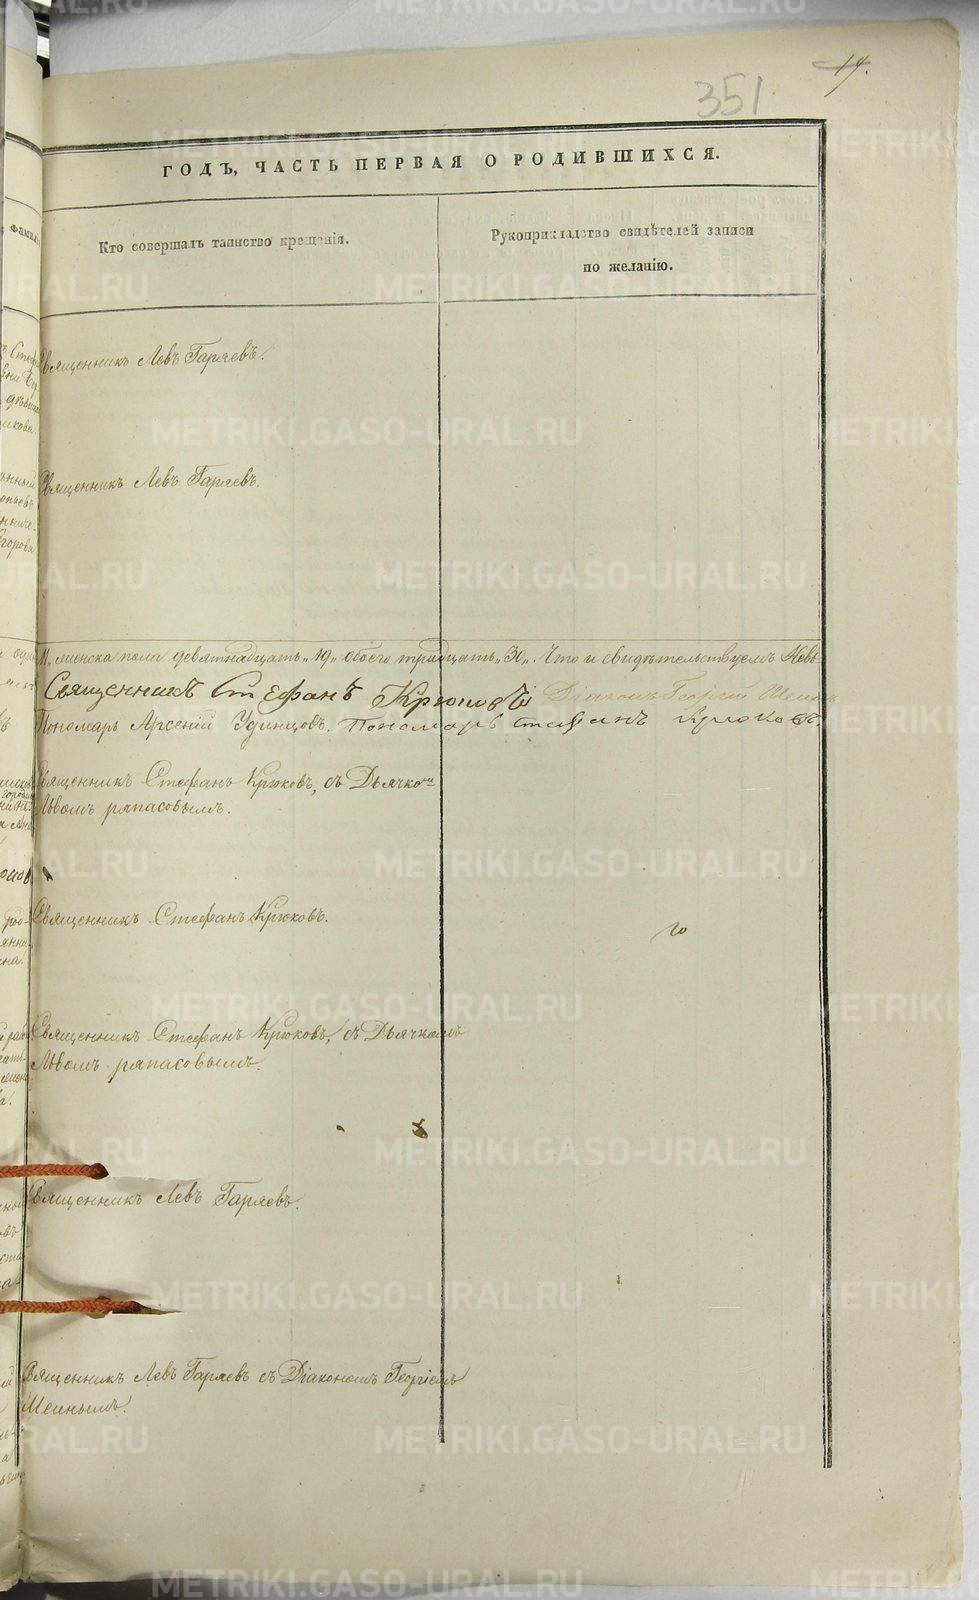 14.
351
ГОДЪ, ЧАСТЬ ПЕРВАЯ О РОДИВШИХСЯ.
Кто совершалъ таинство крещенія.
Рукоприкладство свидѣтелей записи
по желанію.
Священникъ Левъ Гаряевъ.
Священникъ Левъ Гаряевъ.
женска пола девятнадцать „19„ обоего тридцать „30„. Что и свидѣтельствуемъ
Священникъ Стефанъ Крюковъ Діаконъ Георгій
Пономарь Арсеній Удинцовъ. Пономарь стефанъ Крюковъ.
Священникъ Стефанъ Крюковъ, съ Дьячкомъ
Львомъ ряпасовымъ.
Священникъ Стефанъ Крюковъ.
Священникъ Стефанъ Крюковъ, съ Дьячкомъ
Львомъ ряпасовымъ.
Священникъ Левъ Гаряевъ.
Священникъ Левъ Гаряевъ съ Діакономъ Георгіемъ
METRIKI.GASO-URAL.RU